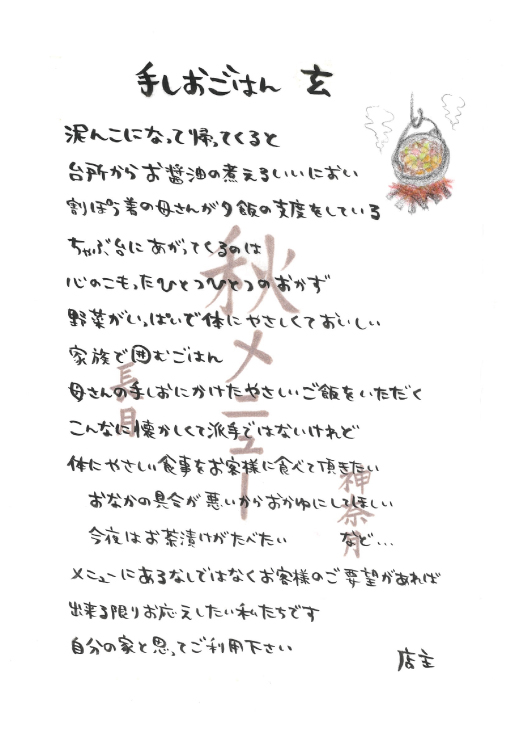 手しおごはん 玄
泥んこになって帰ってくると
台所からお醤油の煮えるいいにおい
割ぽう着の母さんが夕飯の支度をしている
ちゃぶ台にあがってくるのは
心のこもったひとつひとつのおかず
野菜がいっぱいで体にやさしくておいしい
家族で囲むごはん
母さんの手しおにかけたやさしいご飯をいただく
こんなに懐かしくて派手ではないけれど
体にやさしい食事をお客様に食べて頂きたい
おなかの具合が悪いからおかゆにしてほしい
今夜はお茶漬けがたべたい など...
メニューにあるなしではなくお客様のご要望があれば
出来る限りお応えしたい私たちです
自分の家と思ってご利用下さい
店主
秋メニュー
長月
神奈月